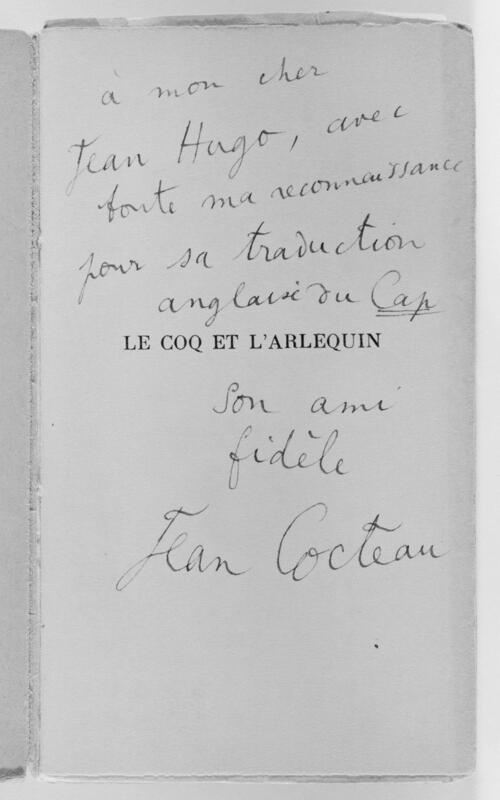 à mon cher
Jean Hugo, avec
toute ma reconnaissance
pour sa traduction
anglaise du Cap
LE COQ ET L'ARLEQUIN
Son ami
fidèle
Jean Cocteau